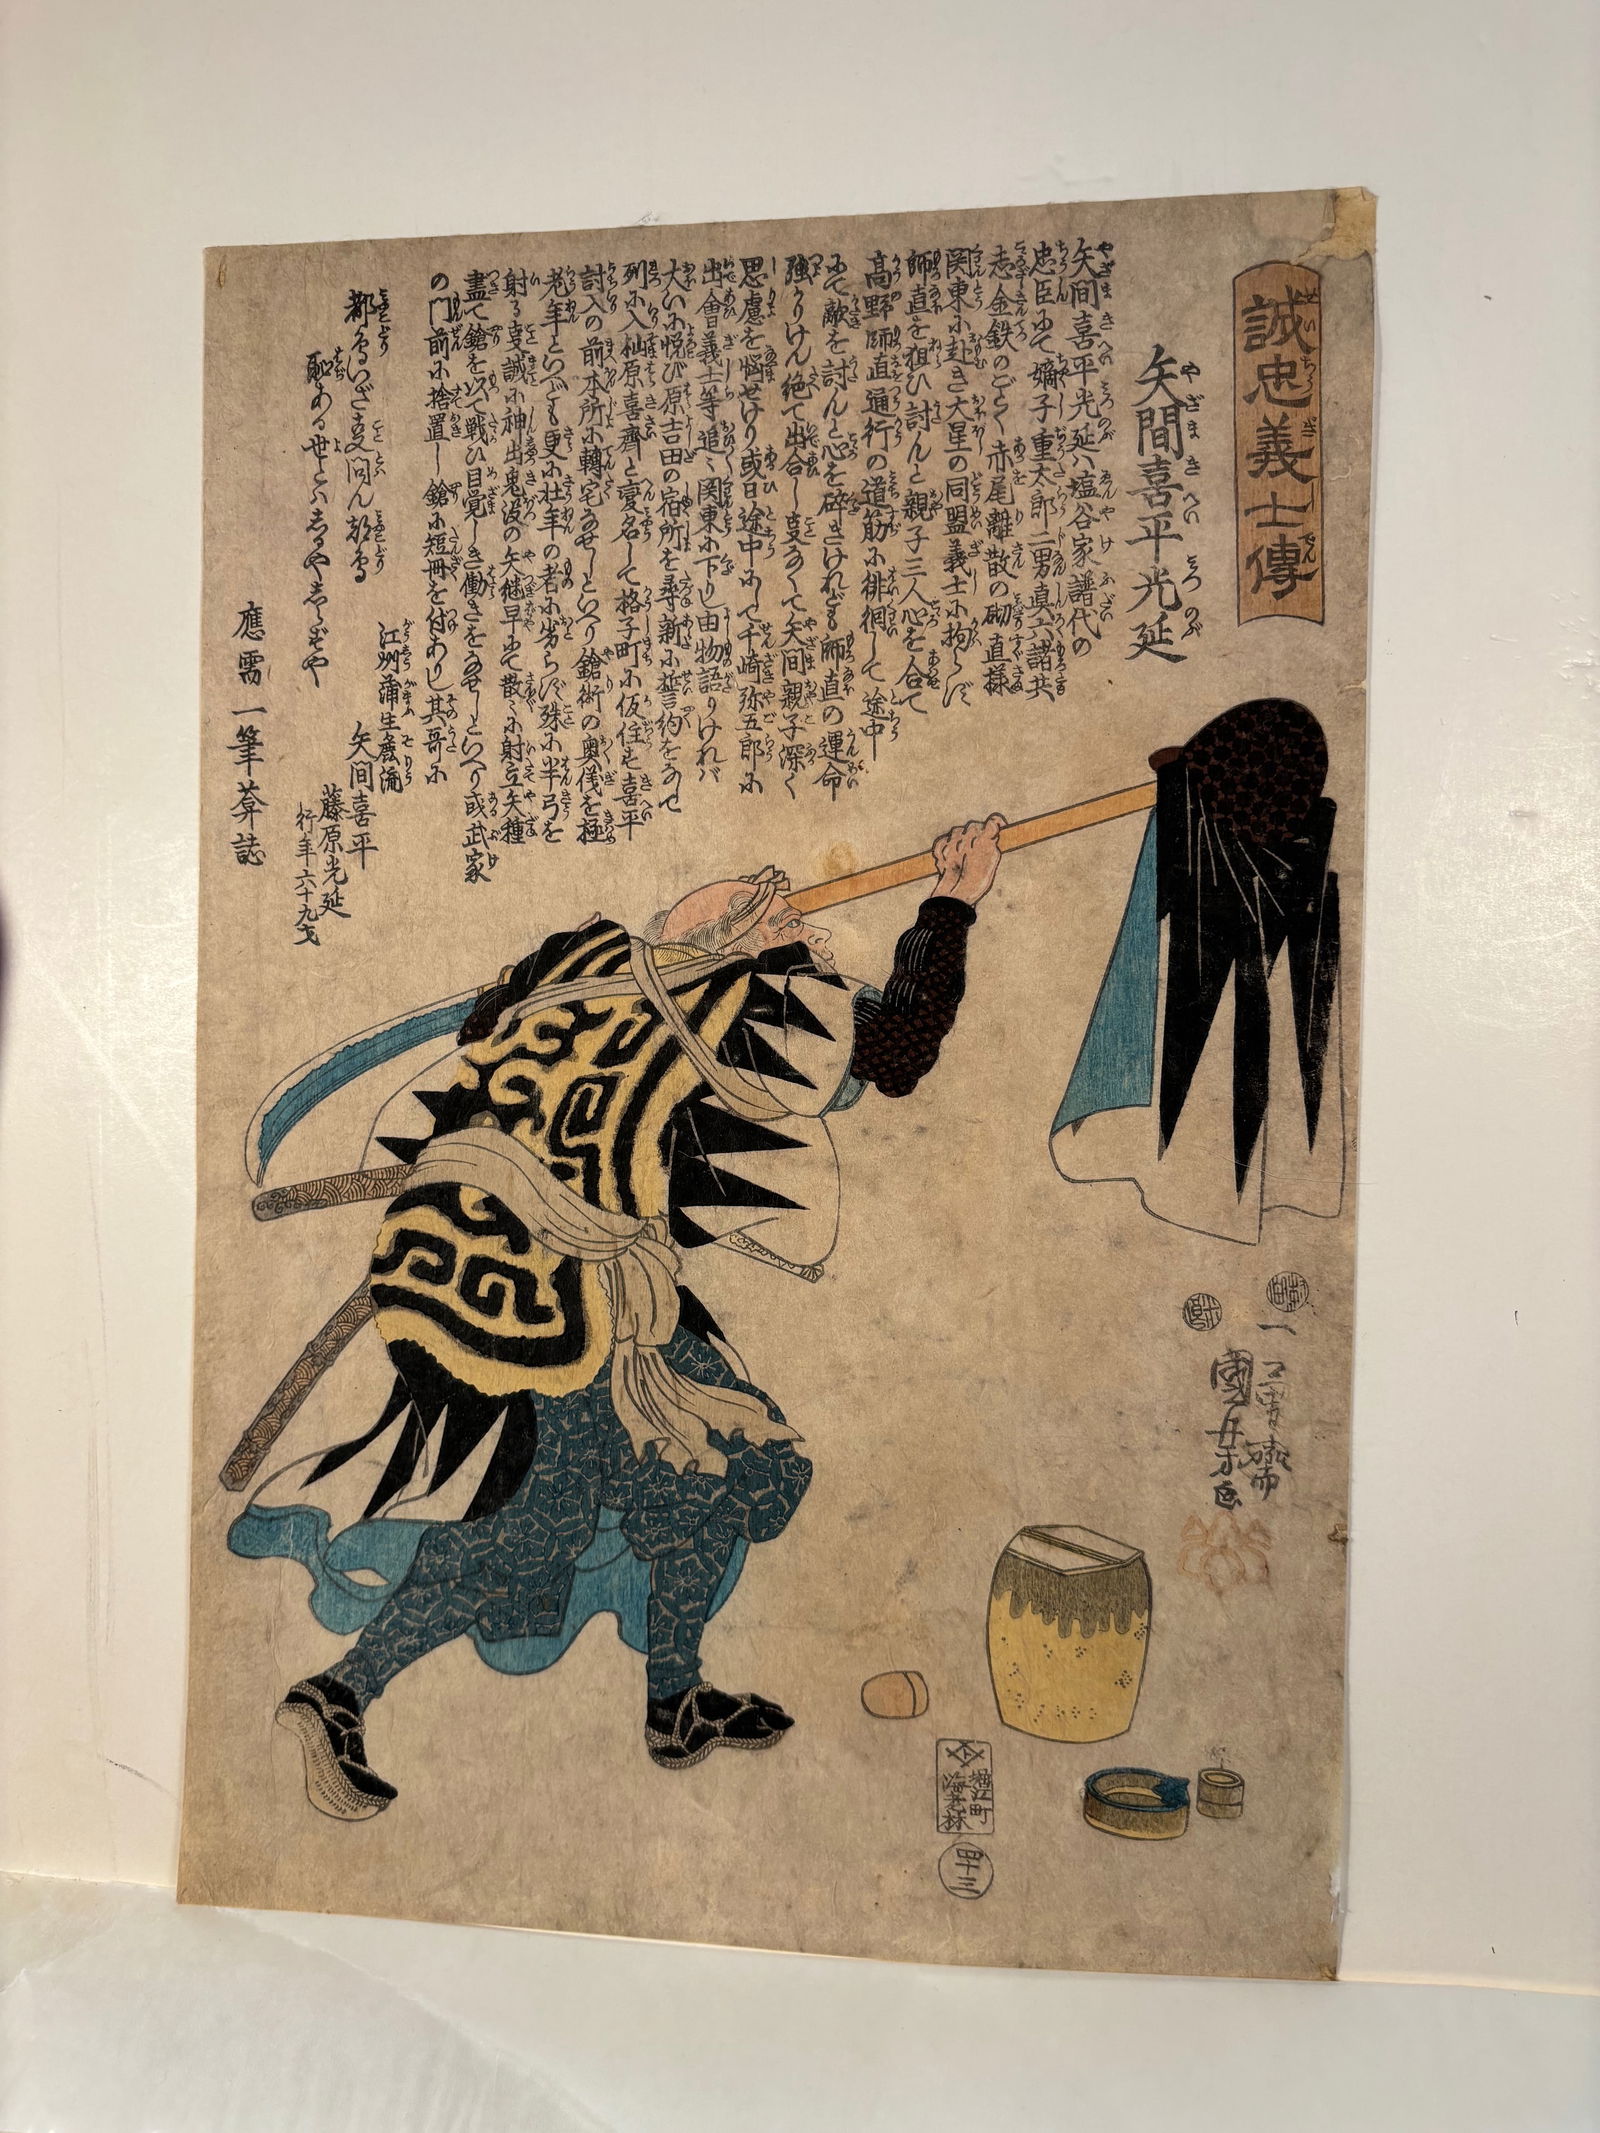 誠忠義士傳
せいちうぎしでん
矢間喜平光延
やざま きへい みつのぶ
矢間喜平光延ハ塩谷家譜代の
忠臣にて嫡子重太郎二男真六諸共
志金鉄のごとく赤尾離散の砌直様
関東に赴き大星の同盟義士に拘らず
師直を狙ひ討んと親子三人心を合て
高野師直通行の道筋に徘徊して途中
にて敵を討んと心を砕きけれども師直の運命
強かりけん絶て出合し事なくて矢間親子深く
思慮を悩せけり或日途中にして千崎弥五郎に
出會義士等追〻関東に下りし由物語りけれバ
大いに悦び原吉田の宿所を尋新に誓約をなして
列に入杣原喜齊と変名して格子町に仮住す喜平
討入の前本所に轉宅なせしといへり鎗術の奥儀を極
老年といへども更に壮年の者に劣らず殊に半弓を
射る事誠に神出鬼没の矢継早にて散〻に射立矢種
盡て鎗を以て戦ひ目覚しき働きをなせしといへり或武家
の門前に捨置し鎗に短冊を付ありし其哥に
都鳥いざ事問ん都鳥
恥ある世とハしるやしらずや
江州蒲生庶流
矢間喜平
藤原光延
行年六十九才
應需一筆葊誌
一勇齋
國芳画
堀江町
海老林
四十三